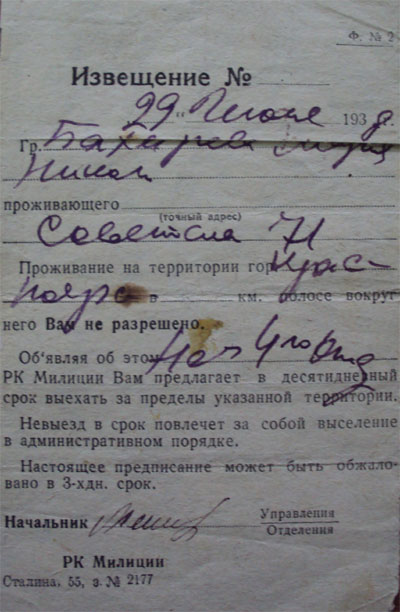 Ф. № 2
Извещение №
„29“ Июня 193 г.
Гр. Бахарева
Никол
проживающего
(точный адрес)
Советская 71
Проживание на территории гор. Крас-
ноярс в км. полосе вокруг
него Вам не разрешено.
Об'являя об этом
РК Милиции Вам предлагает в десятидневный
срок выехать за пределы указанной территории.
Невыезд в срок повлечет за собой выселение
в административном порядке.
Настоящее предписание может быть обжало-
вано в 3-хдн. срок.
Начальник Управления
Отделения
РК Милиции
Сталина, 55, з. № 2177